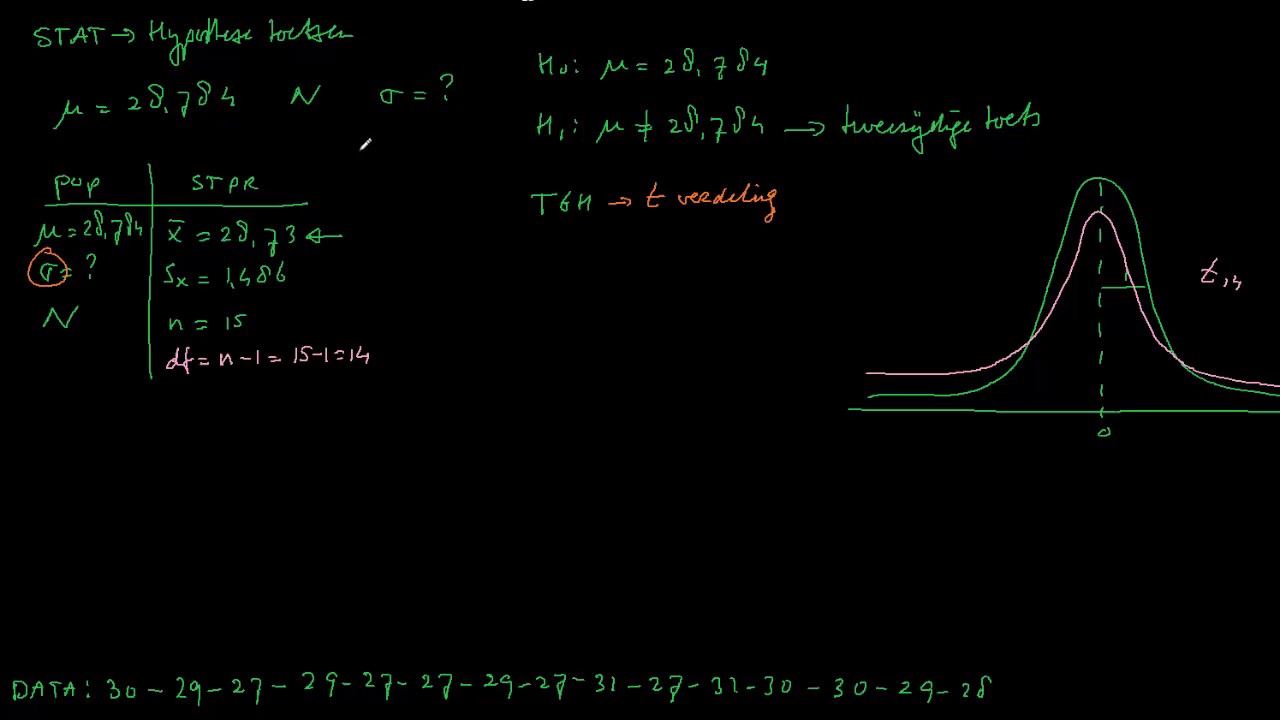 STAT → Hypothese toetsen
μ = 28,784 N σ = ?
pop STPR
μ = 28,784 x̄ = 28,73 ←
σ = ? Sx = 1,486
N n = 15
df = n - 1 = 15 - 1 = 14
H0: μ = 28,784
H1: μ ≠ 28,784 → tweezijdige toets
TGH → t verdeling
t14
1
0
DATA: 30 - 29 - 27 - 29 - 27 - 27 - 29 - 27 - 31 - 27 - 31 - 30 - 30 - 29 - 28